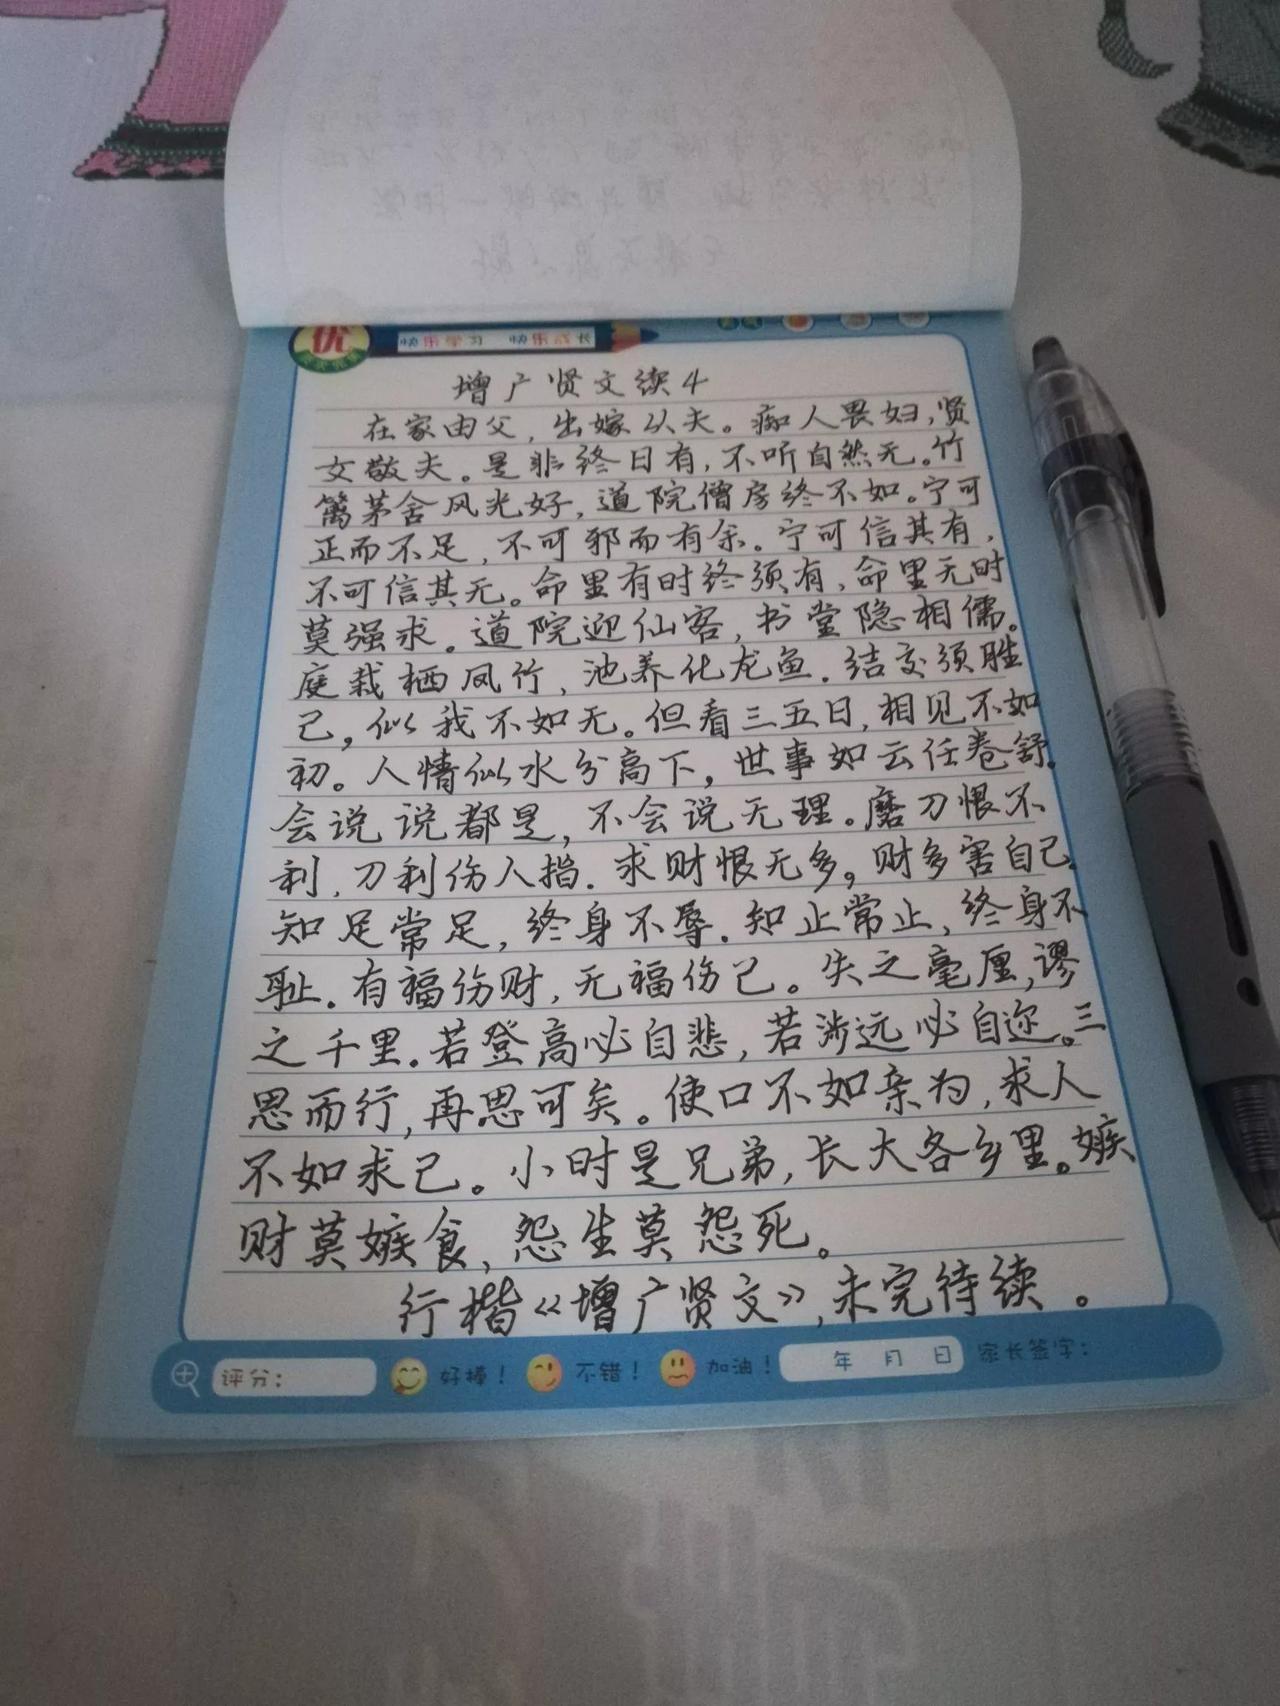 优
快乐学习 快乐成长
增广贤文续4
在家由父，出嫁从夫。痴人畏妇，贤
女敬夫。是非终日有，不听自然无。竹
篱茅舍风光好，道院僧房终不如。宁可
正而不足，不可邪而有余。宁可信其有，
不可信其无。命里有时终须有，命里无时
莫强求。道院迎仙客，书堂隐相儒。
庭栽栖凤竹，池养化龙鱼．结交须胜
己，似我不如无。但看三五日，相见不如
初。人情似水分高下，世事如云任卷舒。
会说说都是，不会说无理。磨刀恨不
利，刀利伤人指．求财恨无多，财多害自己。
知足常足，终身不辱．知止常止，终身不
耻．有福伤财，无福伤己。失之毫厘，谬
之千里．若登高必自悲，若涉远必自迩。三
思而行，再思可矣。使口不如亲为，求人
不如求己。小时是兄弟，长大各乡里。嫉
财莫嫉食，怨生莫怨死。
行楷《增广贤文》，未完待续。
评分： 好棒！ 不错！ 加油！ 年 月 日 家长签字：